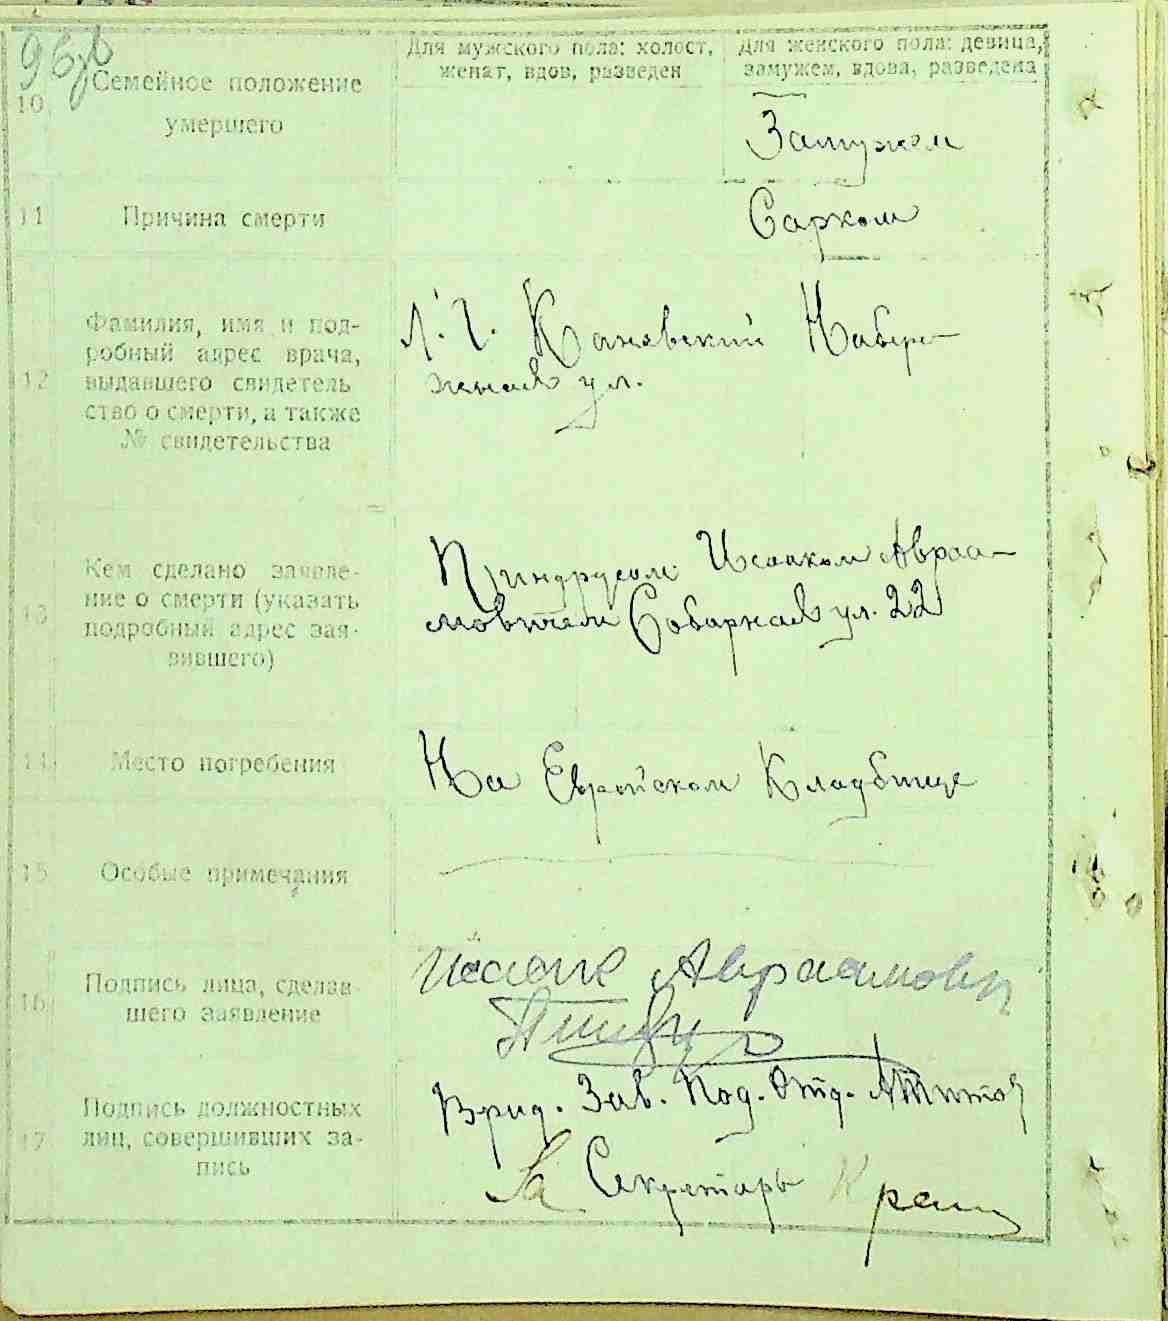 96 об
Для мужского пола: холост,
женат, вдов, разведен
Для женского пола: девица,
замужем, вдова, разведена
10
Семейное положение
умершего
Замужем
11
Причина смерти
Сарком
12
Фамилия, имя и под-
робный адрес врача,
выдавшего свидетель
ство о смерти, а также
№ свидетельства
Л. Г. Каневский Набере-
жная ул.
13
Кем сделано заявле-
ние о смерти (указать
подробный адрес зая-
вившего)
Пиндрусом Исааком Авраа-
мовичем Соборная ул. 22
14
Место погребения
На Еврейском Кладбище
15
Особые примечания
16
Подпись лица, сделав-
шего заявление
Исаак Авраамович
17
Подпись должностных
лиц, совершивших за-
пись
Врид. Зав. Под. Отд.
За Секретарь